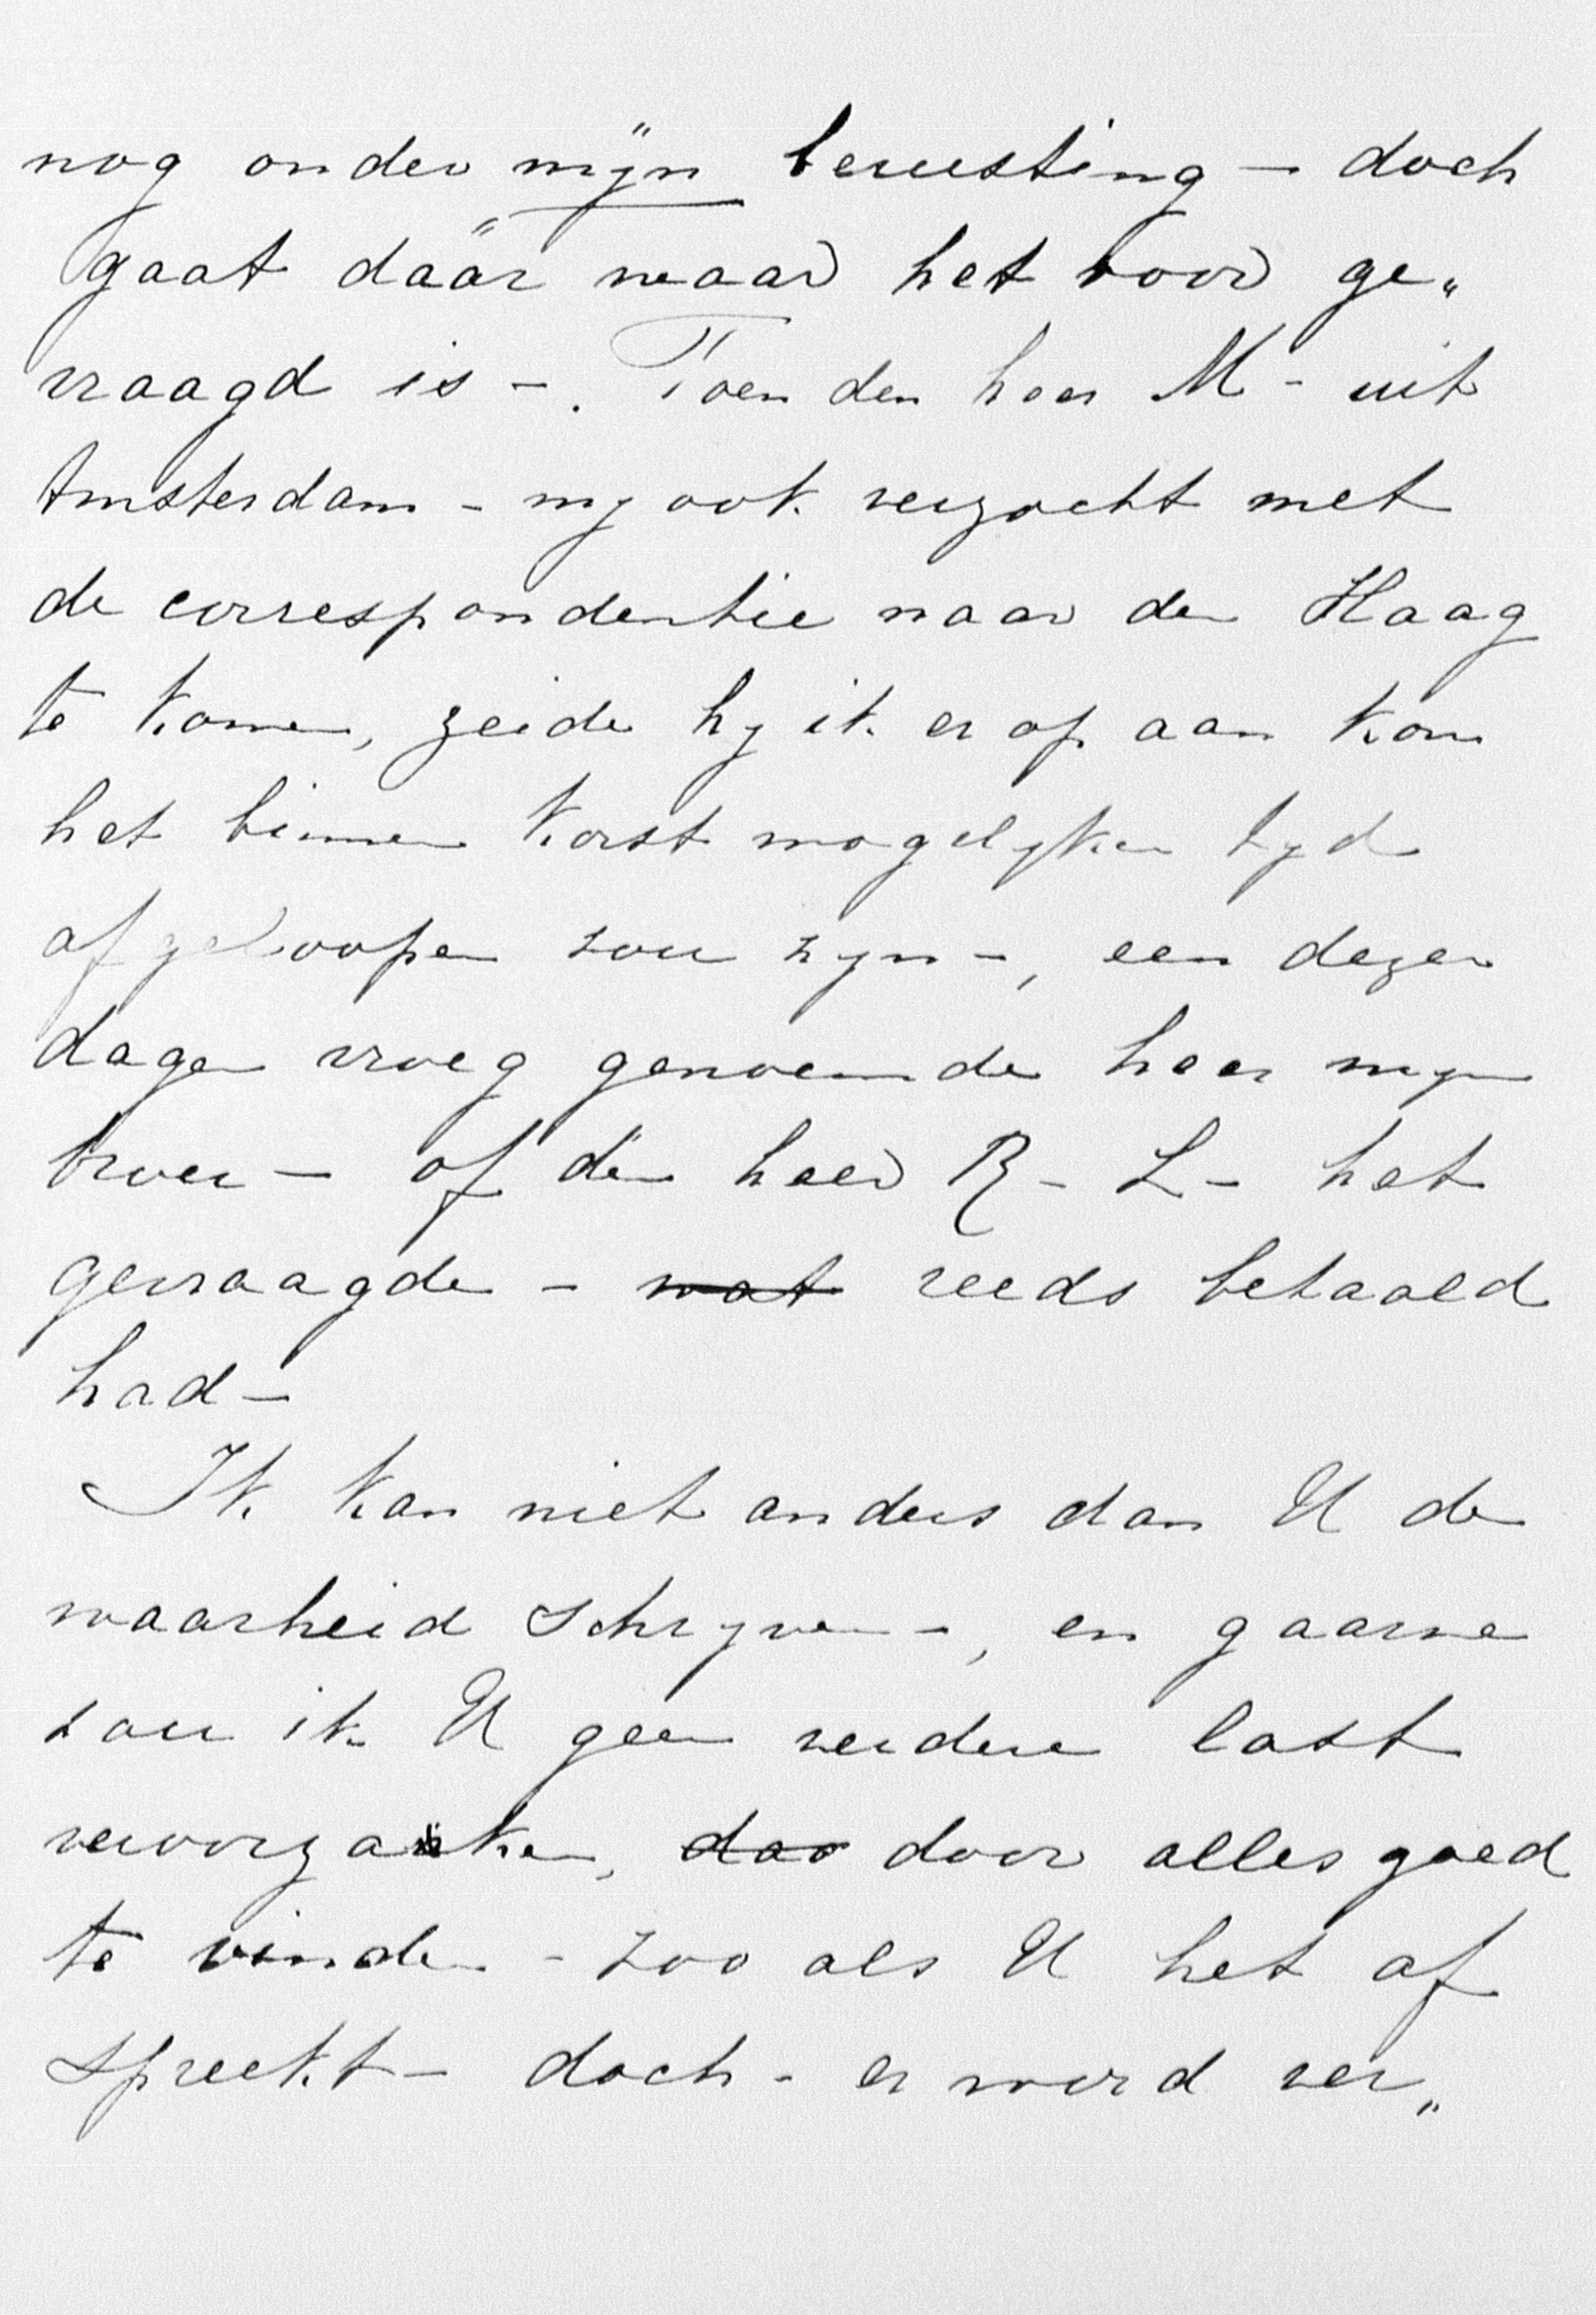 nog onder mÿn berusting – doch
gaat däär waar het voor ge„
vraagd is –. Toen den heer M – uit
Amsterdam – my ook verzocht met
de correspondentie naar den Haag
te komen, zeide hy ik er op aan kon
het binnen korst mogelyken tyd
afgeloopen zou zyn –, een dezer
dagen vroeg genoemde heer myn
broer – of den heer R – L – het
gevraagde – wat reeds betaald
had –
Ik kan niet anders dan U de
waarheid schryven –, en gaarne
zou ik U geen verdere last
veroorzaken, dao door alles goed
te vinden – zoo als U het af
spreekt – doch – er werd ver„